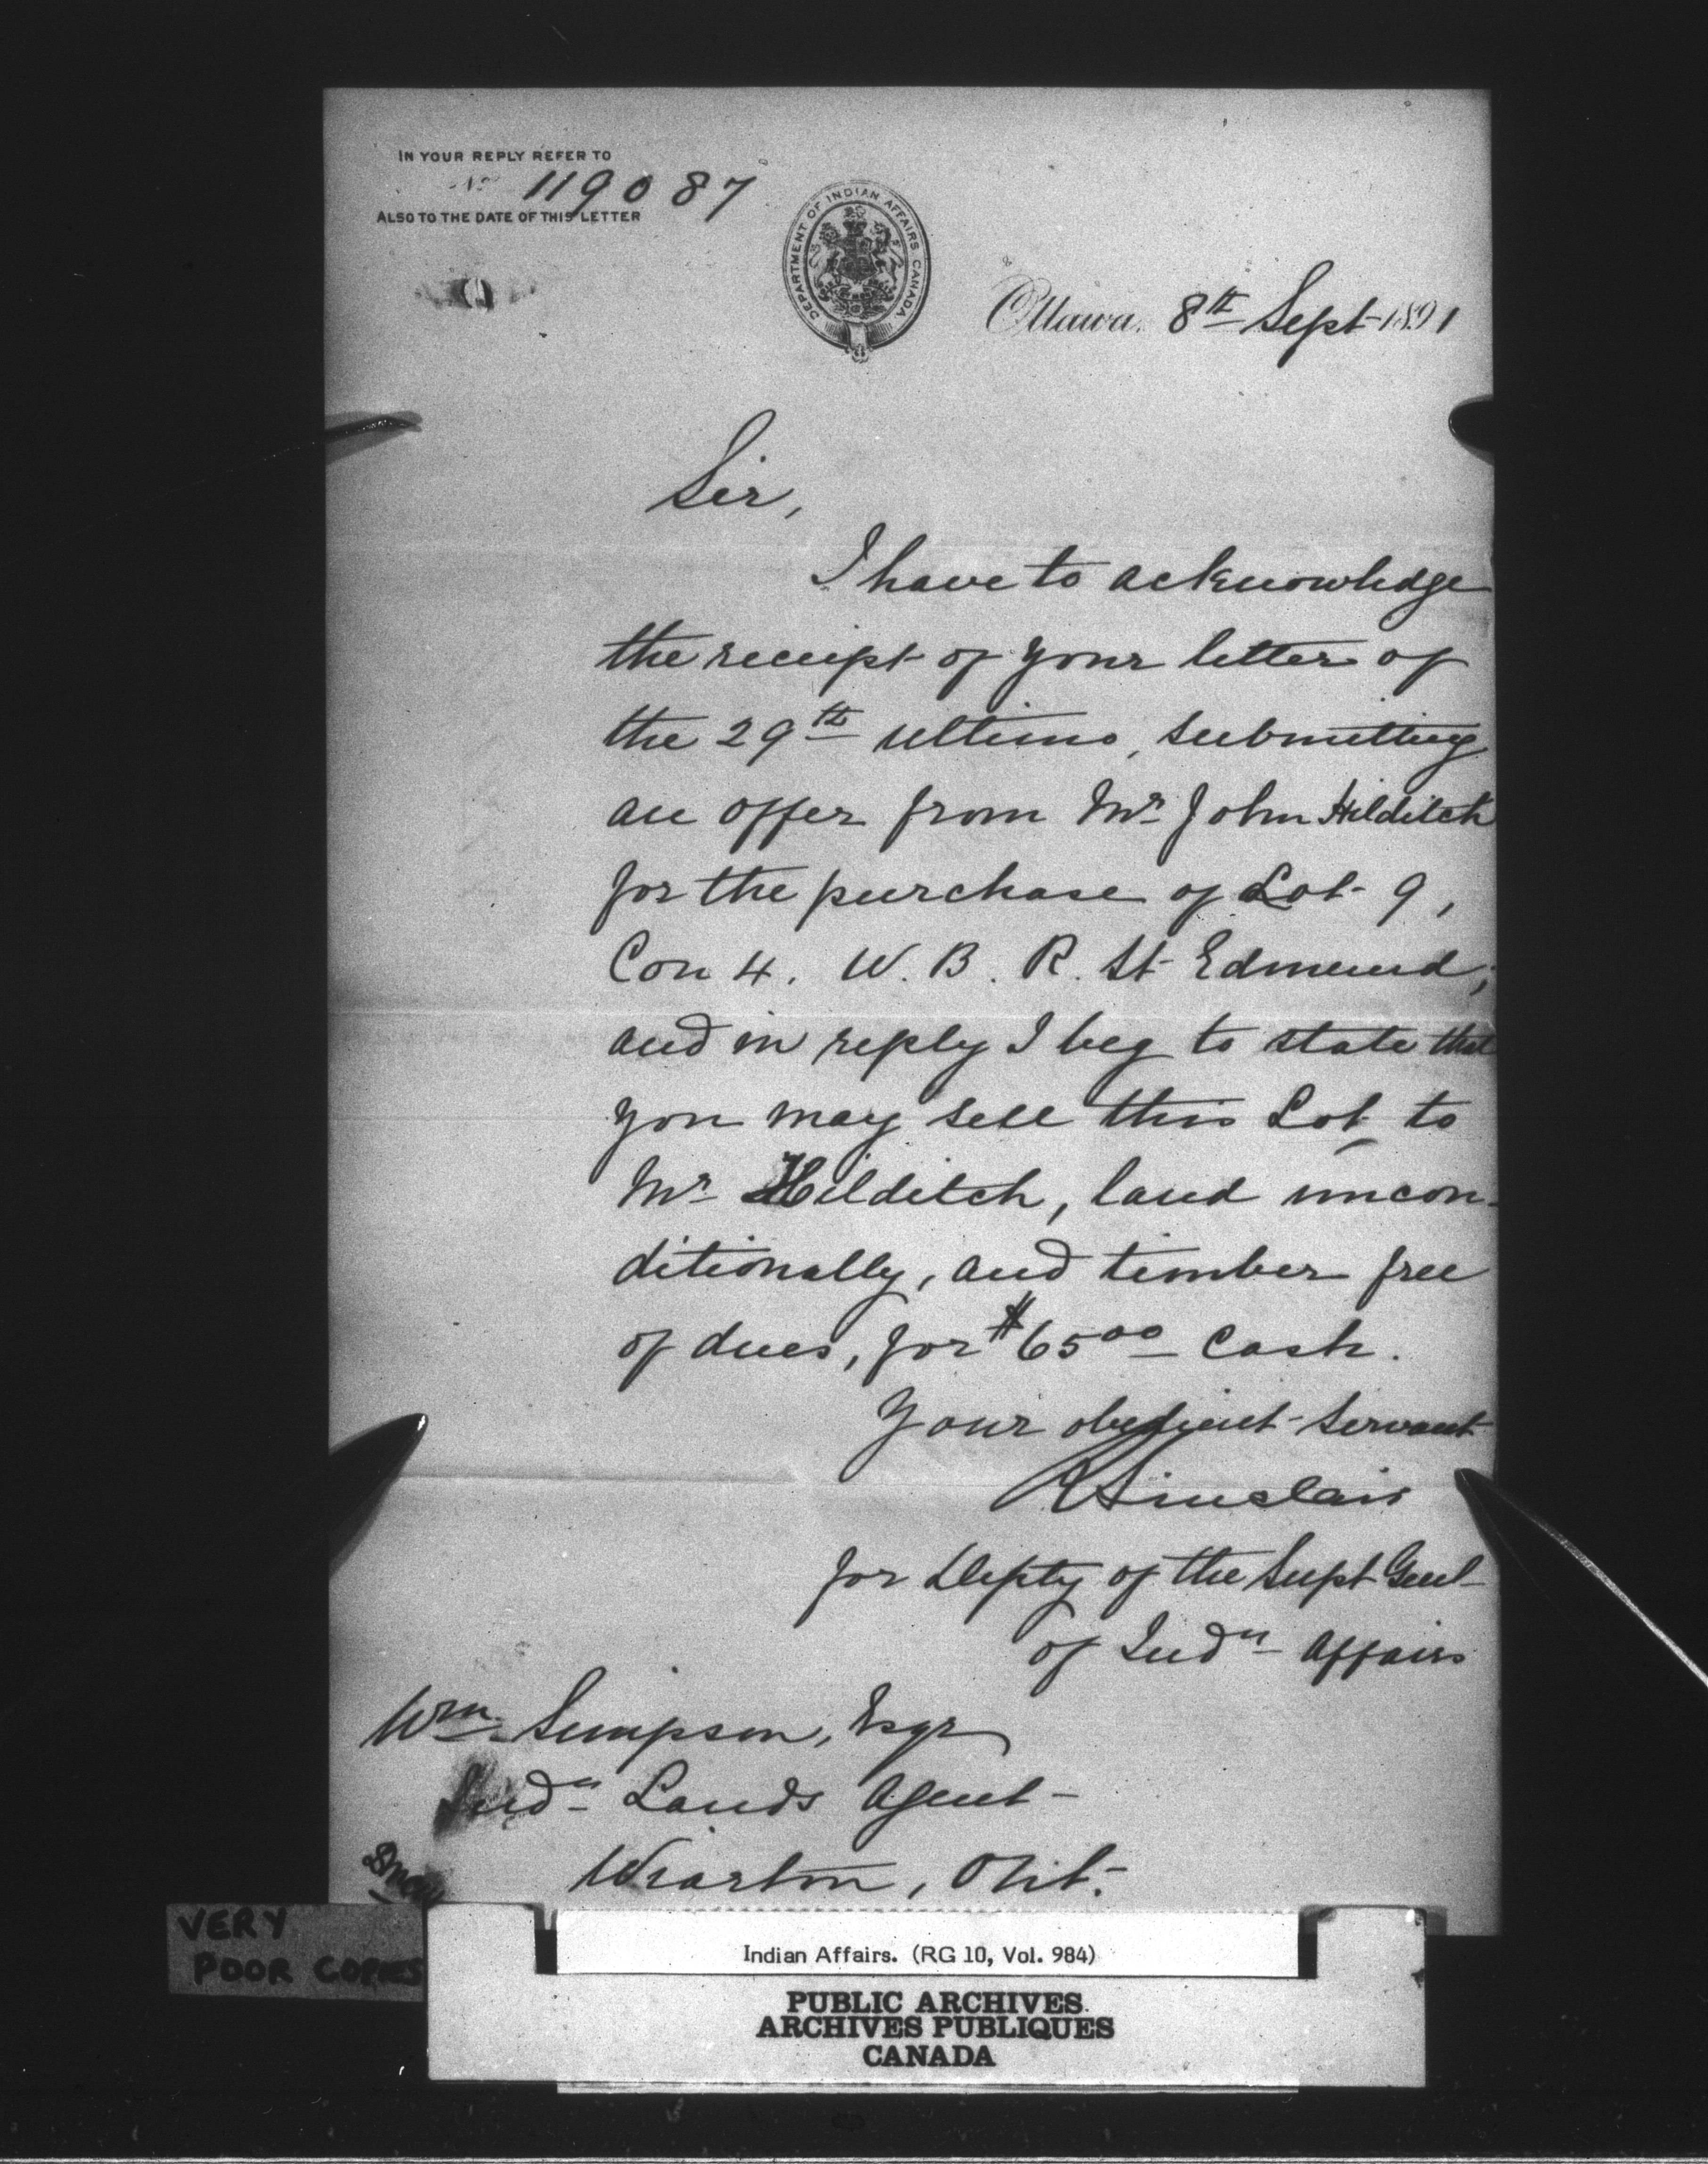 IN YOUR REPLY REFER TO
No 119087
ALSO TO THE DATE OF THIS LETTER
DEPARTMENT OF INDIAN AFFAIRS CANADA
Ottawa, 8th Sept 1891
Sir,
I have to acknowledge
the receipt of your letter of
the 29th ultimo, submitting
an offer from Mr John Hilditch
for the purchase of Lot 9,
Con 4. W. B. R. St Edmund;
and in reply I beg to state that
you may sell this Lot to
Mr Hilditch, land uncon-
ditionally, and timber free
of dues, for $65 00 Cash.
Your obedient servant
R Sinclair
for Depty of the Supt Genl
of Indn Affairs
Wm Simpson, Esqr
Indn Lands Agent
Wiarton, Ont.
VERY
POOR COPIES
Indian Affairs. (RG 10, Vol. 984)
PUBLIC ARCHIVES
ARCHIVES PUBLIQUES
CANADA